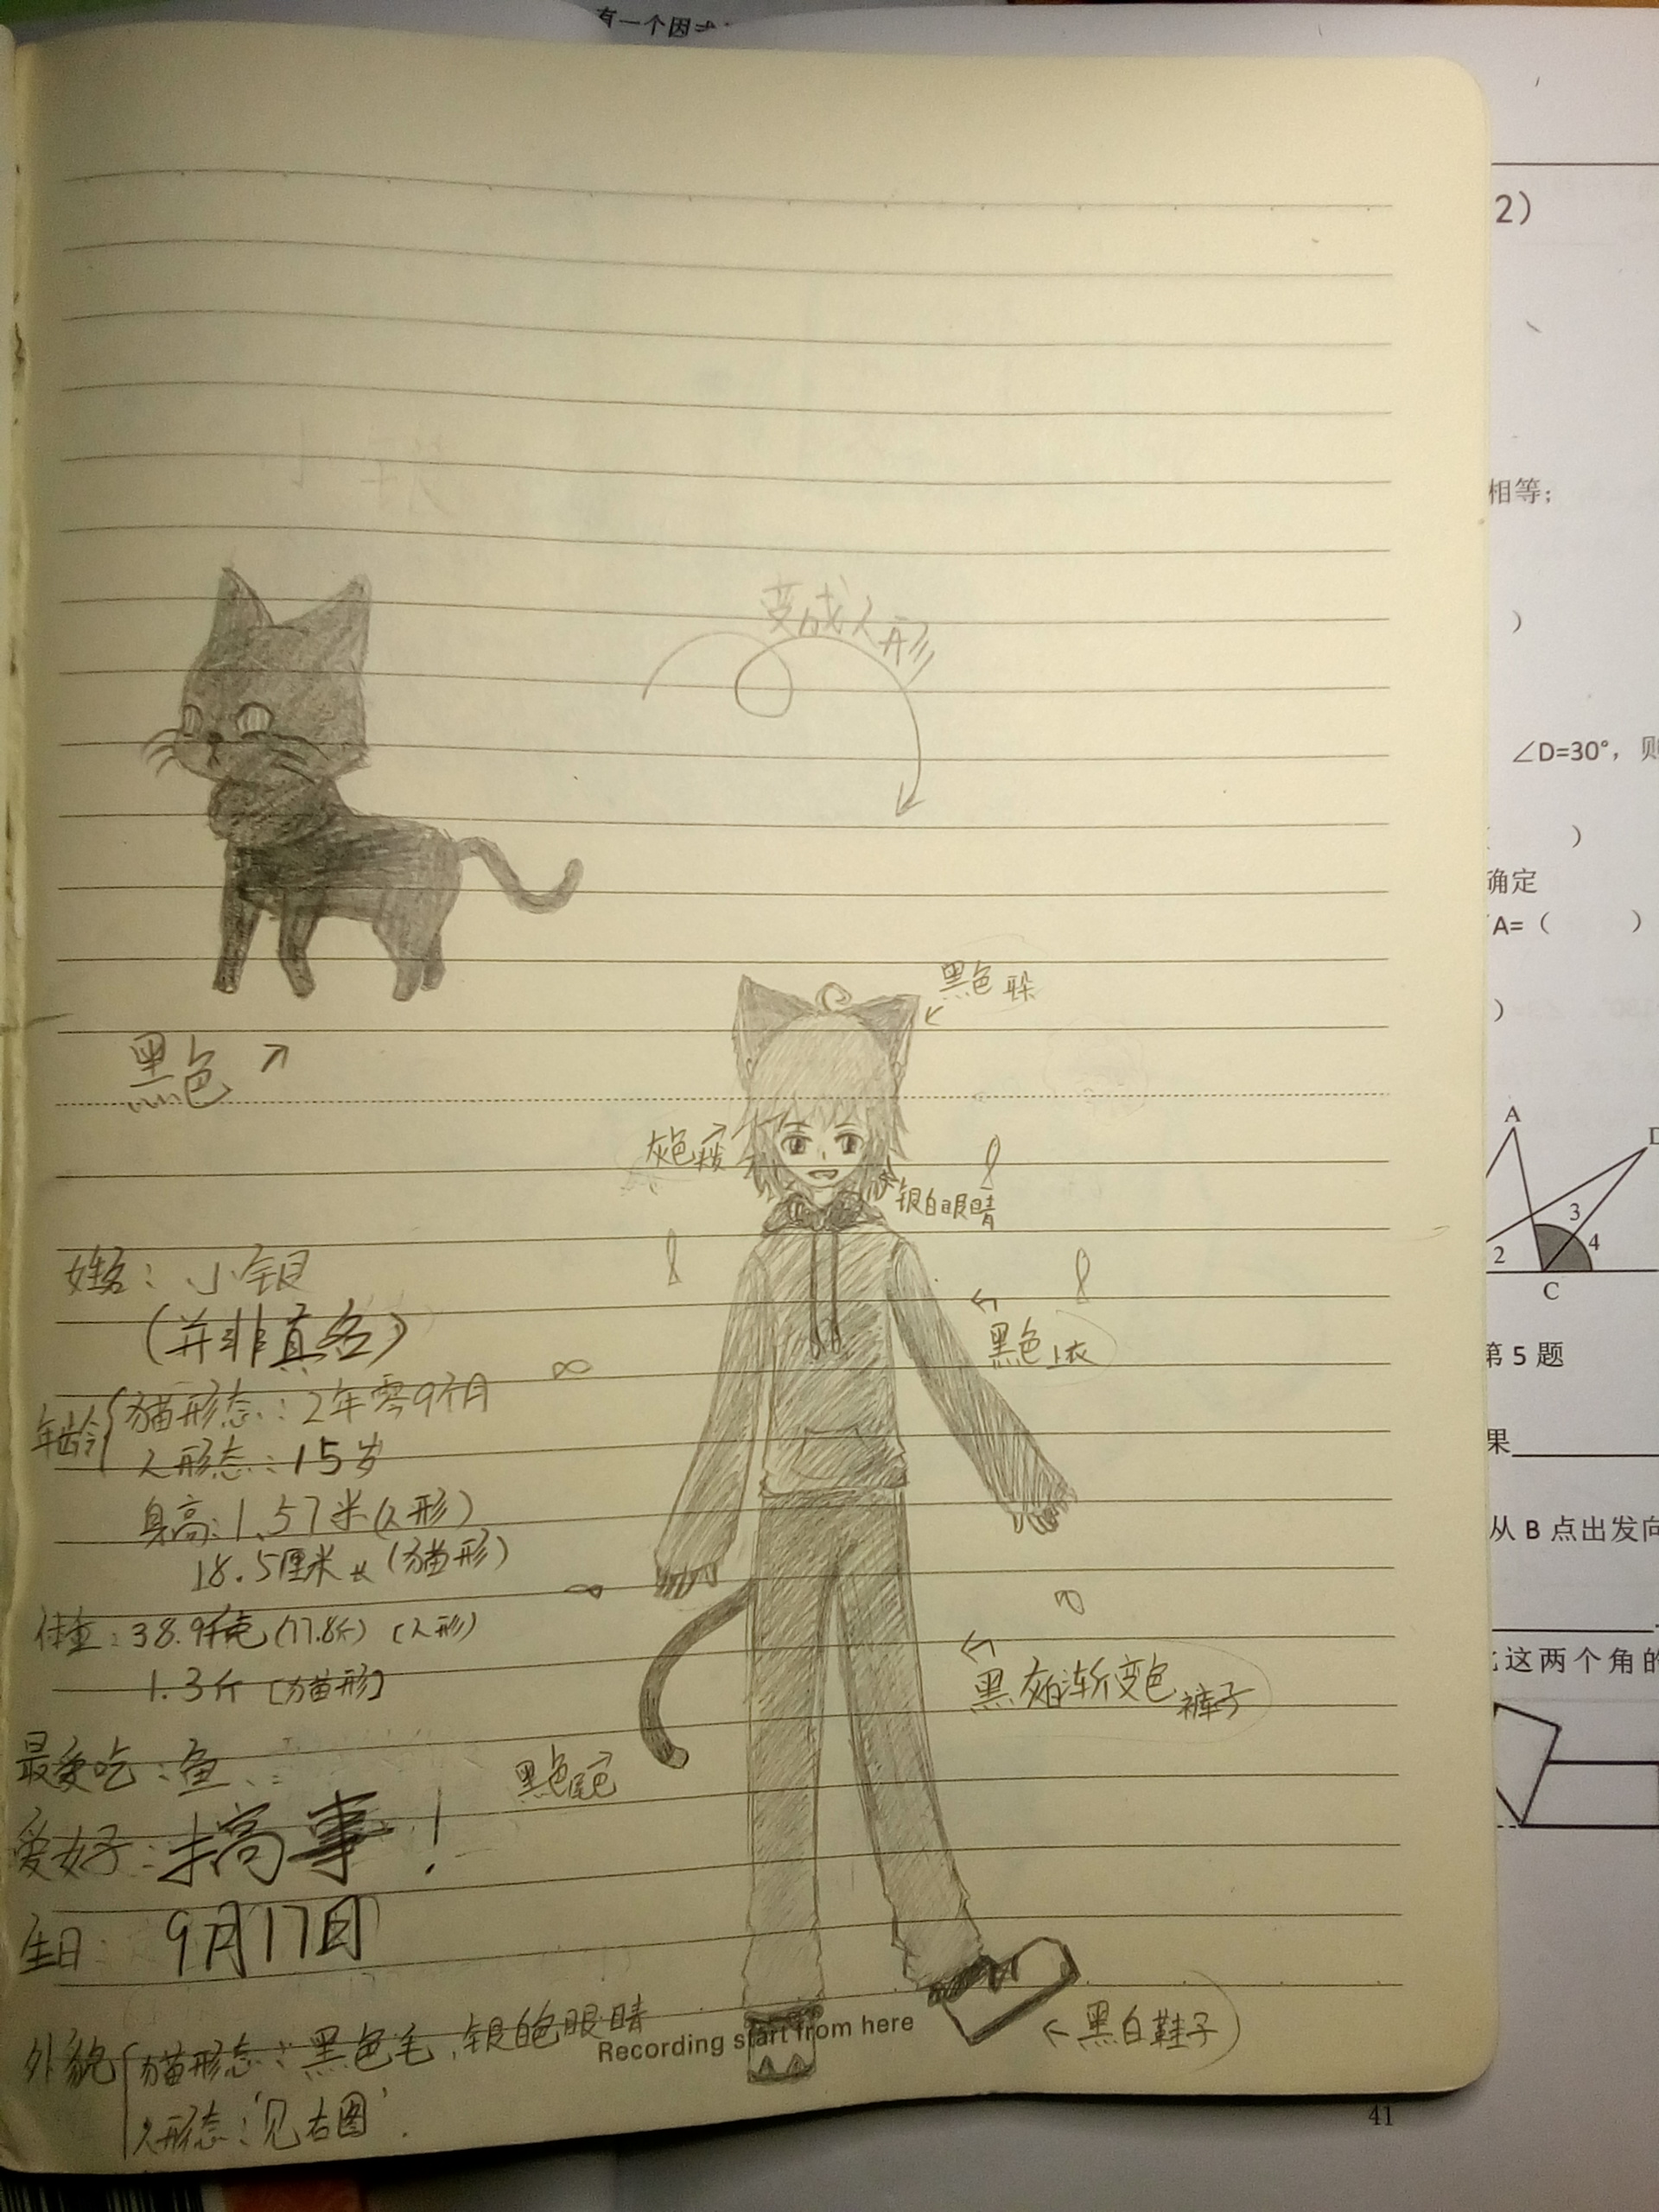 有一个因
2）
相等；
变成人形
）
∠D=30°，则
）
确定
A=（ ）
）
黑色
黑色
灰色
银白眼睛
A
3
4
2
C
姓名：小银
（并非真名）
黑色上衣
第 5 题
年龄 猫形态：2年零9个月
人形态：15岁
果
身高：1.57米（人形）
18.5厘米（猫形）
从 B 点出发向
体重：38.9千克（77.8斤）（人形）
1.3斤［猫形］
这两个角的
黑灰白渐变色裤子
最爱吃：鱼
黑色尾巴
爱好：搞事！
生日：9月17日
外貌 猫形态：黑色毛，银白色眼睛
Recording start from here
黑白鞋子
人形态：‘见右图’.
41